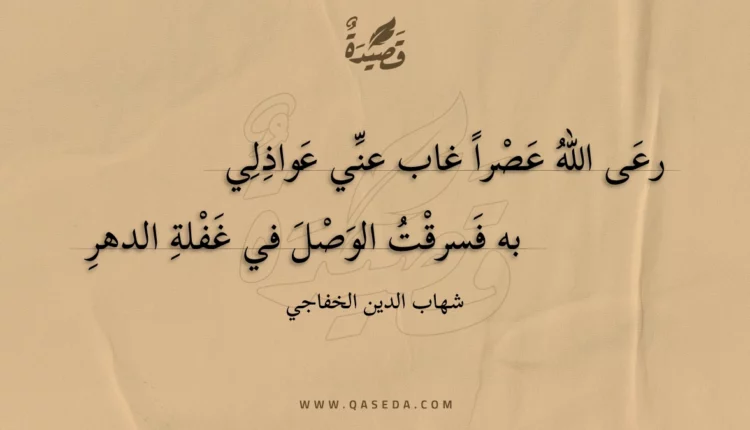 قَصِيدَةٌ
رعَى اللهُ عَصْراً غاب عنِّي عَواذِلِي
به فَسرقْتُ الوَصْلَ في غَفْلةِ الدهرِ
شهاب الدين الخفاجي
WWW.QASEDA.COM